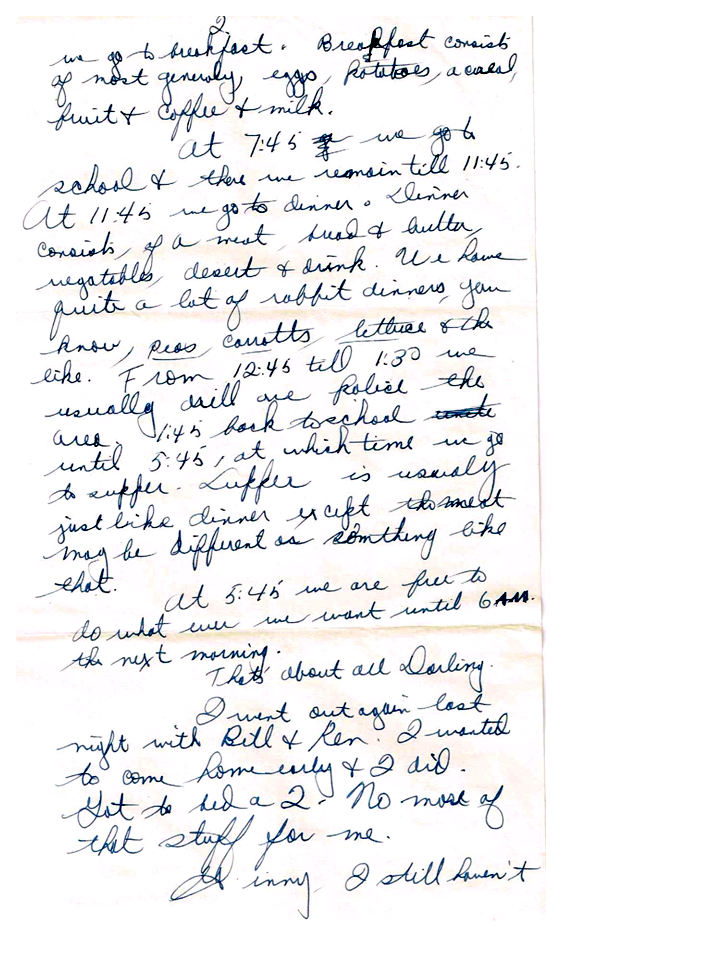 2
we go to breakfast. Breakfast consists
of most generaly, eggs, potatoes, a cereal,
fruit & coffee & milk.
At 7:45 we go to
school & there we remain till 11:45.
At 11:45 we go to dinner. Dinner
consists, of a meat, bread & butter,
vegatables, desert & drink. We have
quite a lot of rabbit dinners, you
know, peas, carrotts, lettuce & the
like. From 12:45 till 1:30 we
usually drill are police the
area. 1:45 back to school
until 5:45, at which time we go
to supper. Supper is usualy
just like dinner except the meat
may be different or somthing like
that.
At 5:45 we are free to
do what ever we want until 6 A.M.
the next morning.
That's about all Darling.
I went out again last
night with Bill & Ken. I wanted
to come home early & I did.
Got to bed a 2. No more of
that stuff for me.
Ginny, I still haven't